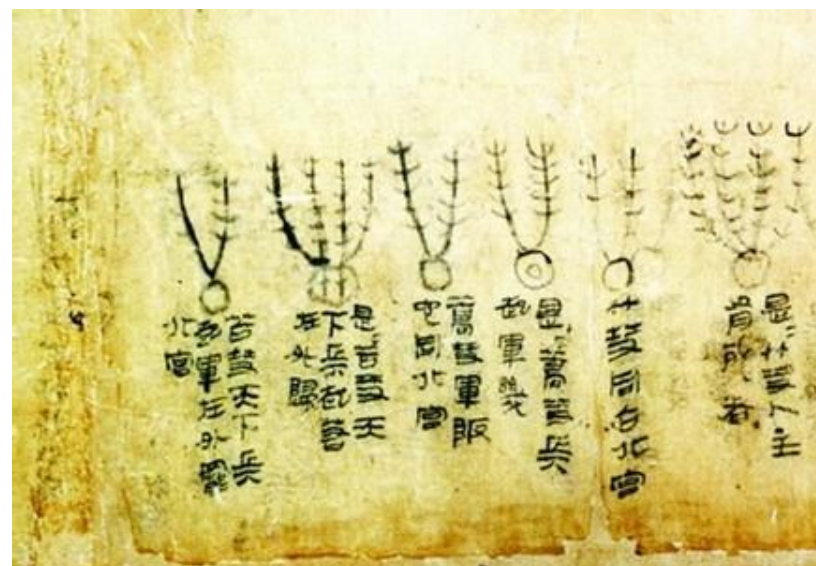 是〻竹彗人主
有死者
竹彗同占北宮
是〻蒿彗兵
起軍幾
蒿彗軍阪
它同北宮
是〻苫彗天
下兵起若
在外歸
苫彗天下兵
起軍在外罷
北宮